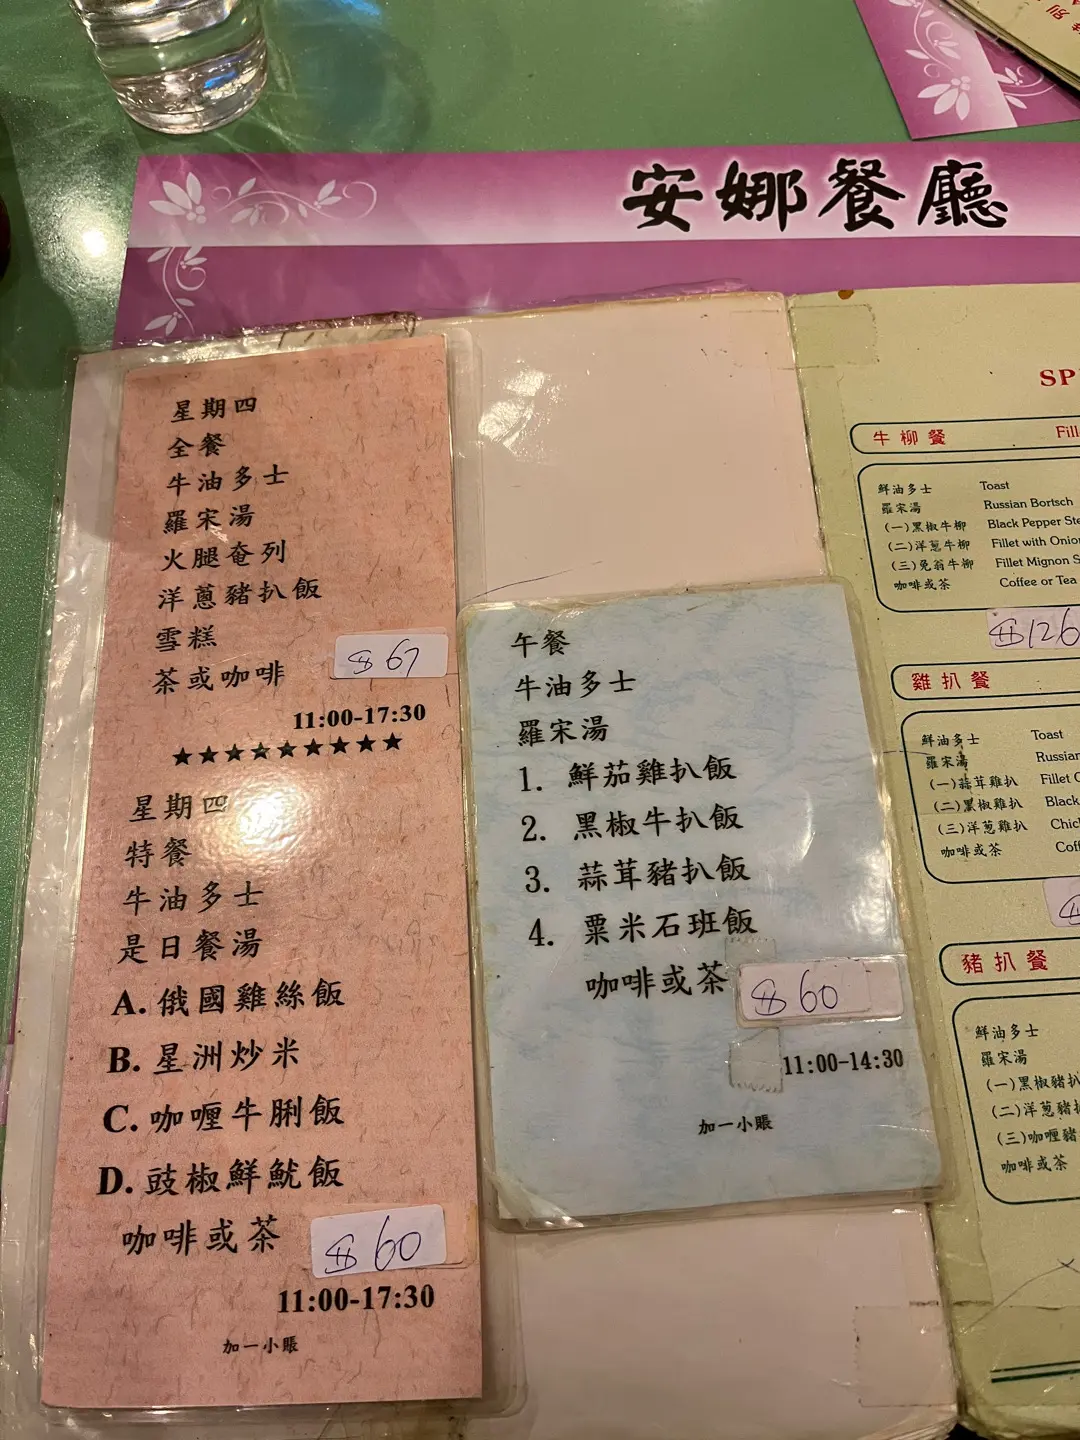 安娜餐廳
星期四
全餐
牛油多士
羅宋湯
火腿奄列
洋蔥豬扒飯
雪糕
茶或咖啡
$67
11:00-17:30
★★★★★★★★★
星期四
特餐
牛油多士
是日餐湯
A. 俄國雞絲飯
B. 星洲炒米
C. 咖喱牛脷飯
D. 豉椒鮮魷飯
咖啡或茶
$60
11:00-17:30
加一小賬
午餐
牛油多士
羅宋湯
1. 鮮茄雞扒飯
2. 黑椒牛扒飯
3. 蒜茸豬扒飯
4. 粟米石班飯
咖啡或茶
$60
11:00-14:30
加一小賬
SP
牛柳餐 Fill
鮮油多士 Toast
羅宋湯 Russian Bortsch
(一)黑椒牛柳 Black Pepper Ste
(二)洋蔥牛柳 Fillet with Onion
(三)免翁牛柳 Fillet Mignon S
咖啡或茶 Coffee or Tea
$126
雞扒餐
鮮油多士 Toast
羅宋湯 Russian
(一)蒜茸雞扒 Fillet
(二)黑椒雞扒 Black
(三)洋蔥雞扒 Chic
咖啡或茶 Coff
豬扒餐
鮮油多士
羅宋湯
(一)黑椒豬扒
(二)洋蔥豬扒
(三)咖喱豬
咖啡或茶